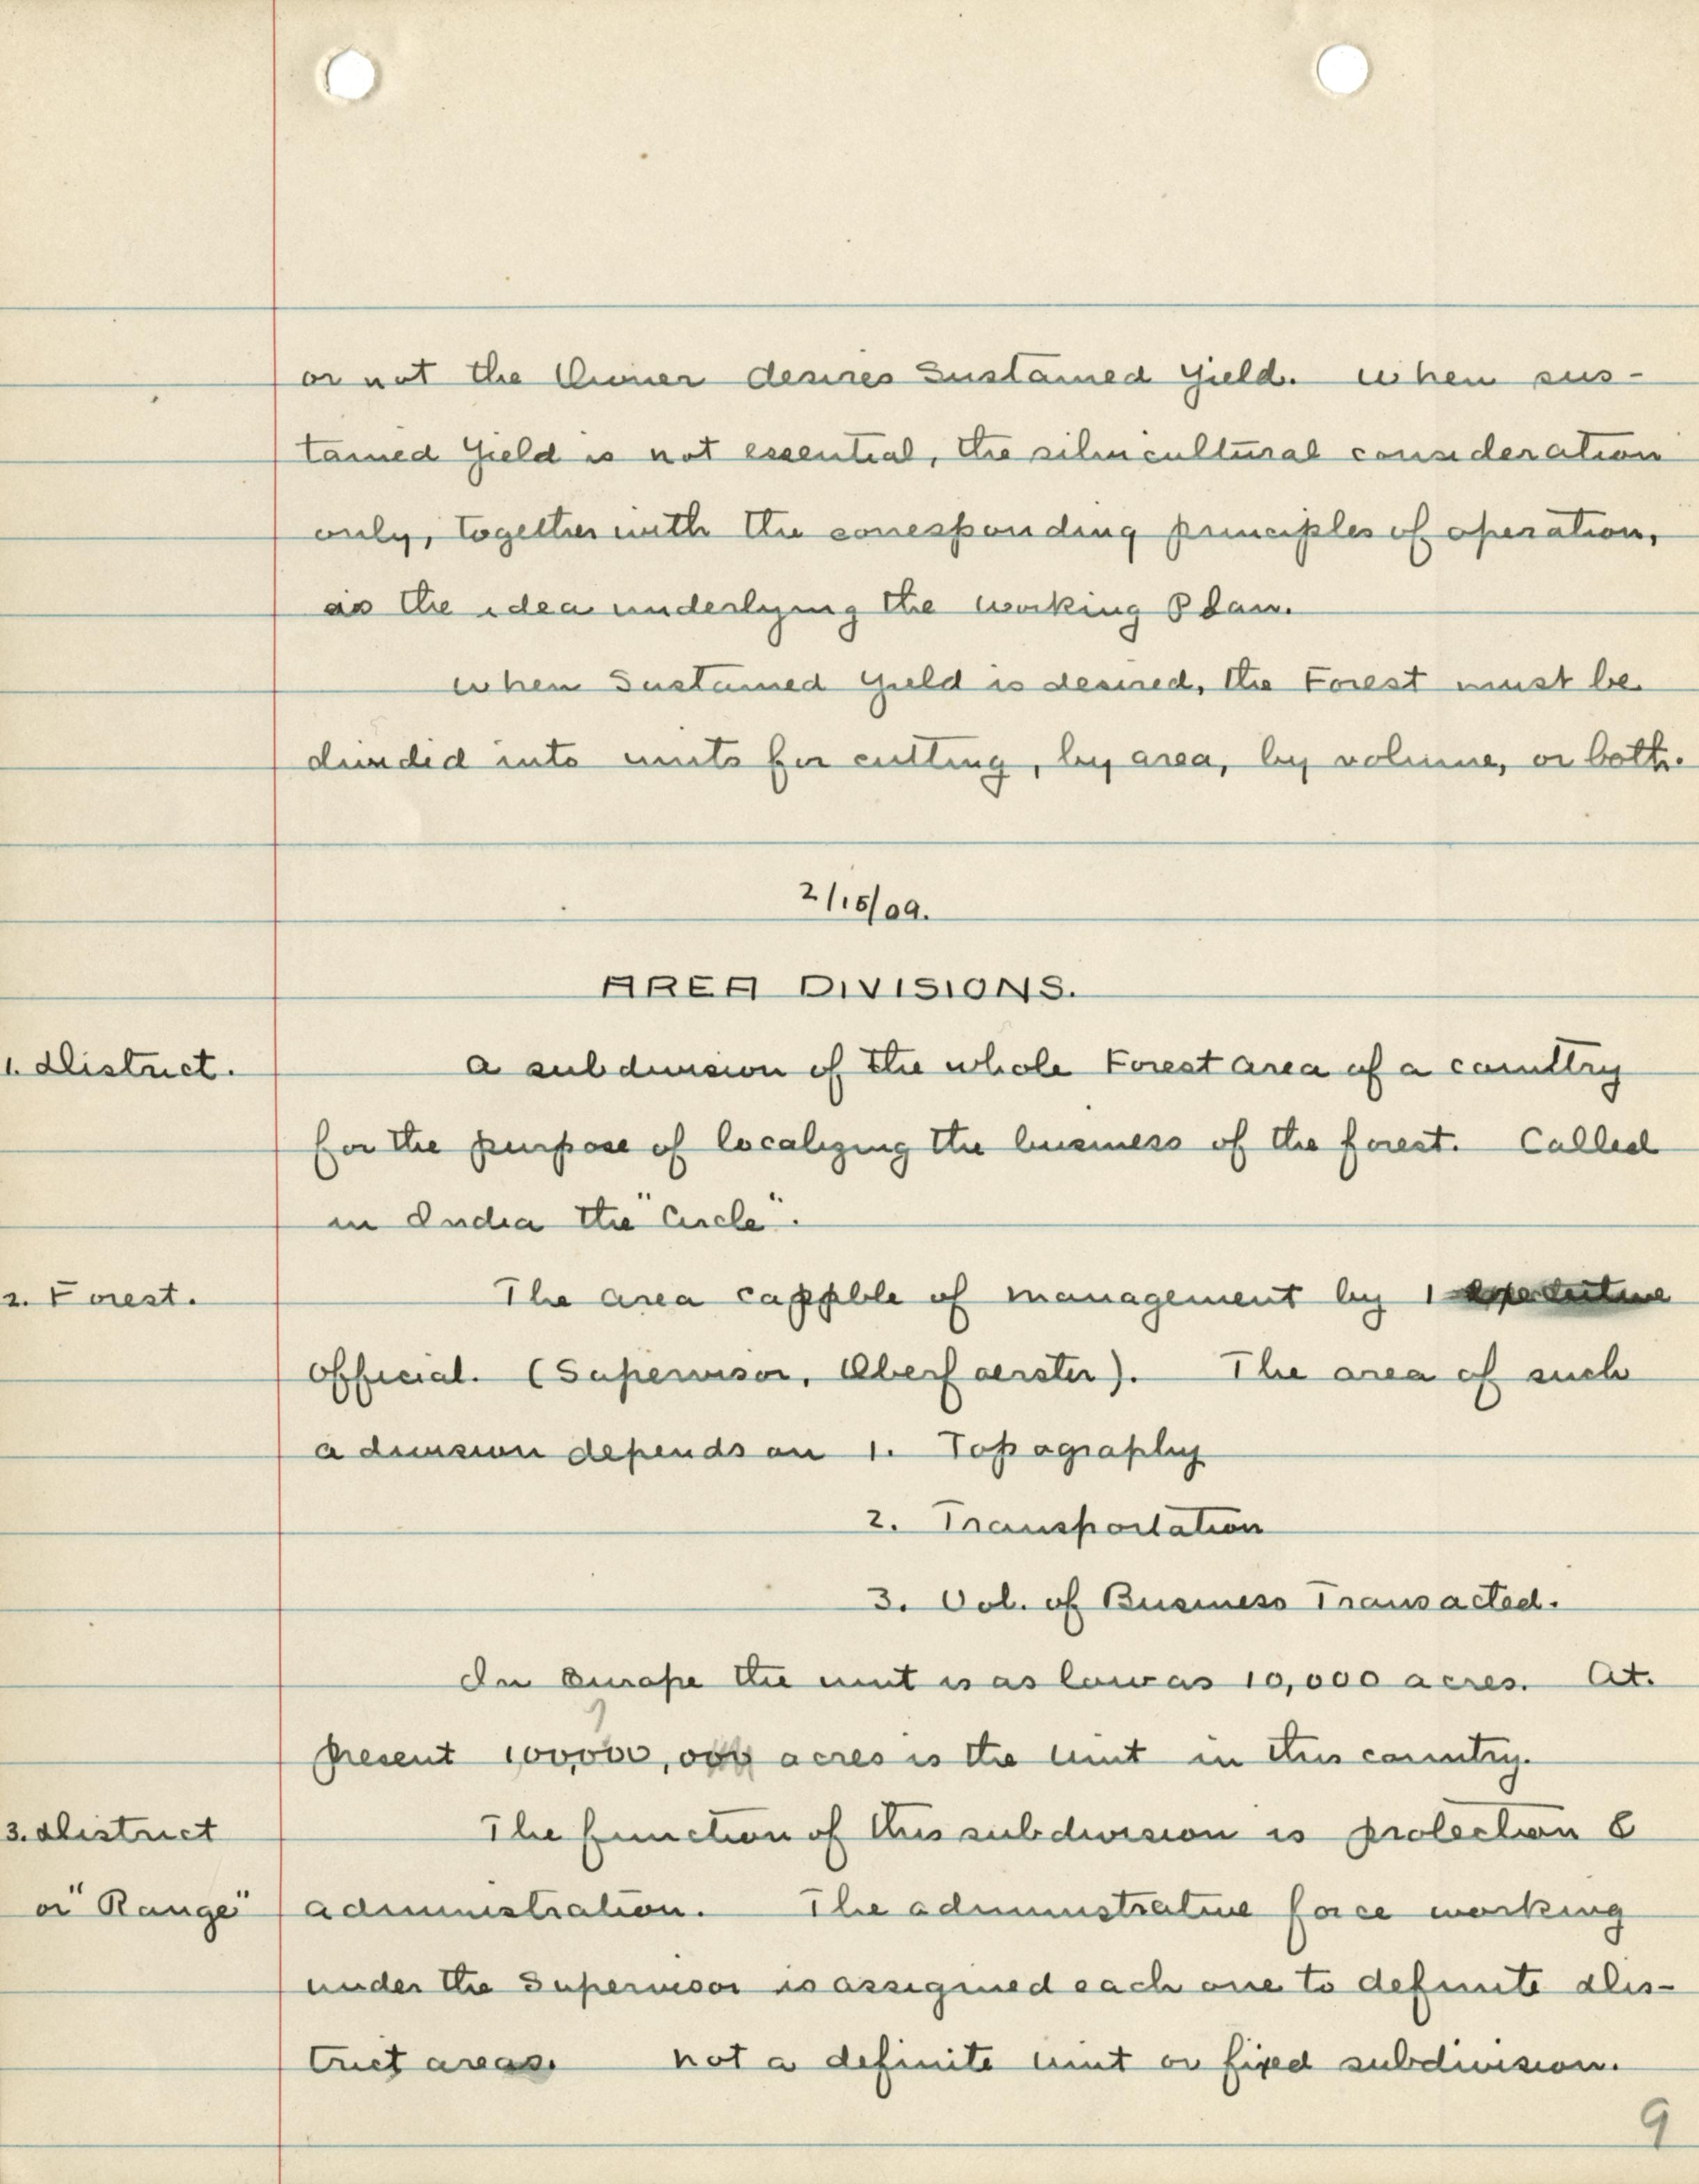 or not the Owner desires Sustained Yield. When sus-
tained Yield is not essential, the silvicultural consideration
only, together with the corresponding principles of operation,
as the idea underlying the Working Plan.
When Sustained Yield is desired, the Forest must be
divided into units for cutting, by area, by volume, or both.
2/15/09.
AREA DIVISIONS.
1. District. A subdivision of the whole Forest area of a country
for the purpose of localizing the business of the forest. Called
in India the "Circle".
2. Forest. The area capable of management by 1 executive
official. (Supervisor, Oberfoerster). The area of such
a division depends on 1. Topography
2. Transportation
3. Vol. of Business Transacted.
In Europe the unit is as low as 10,000 acres. At
present 100,000, acres is the unit in this country.
3. District The function of this subdivision is protection &
or "Range" administration. The administrative force working
under the Supervisor is assigned each one to definite dis-
trict areas. not a definite unit or fixed subdivision.
9